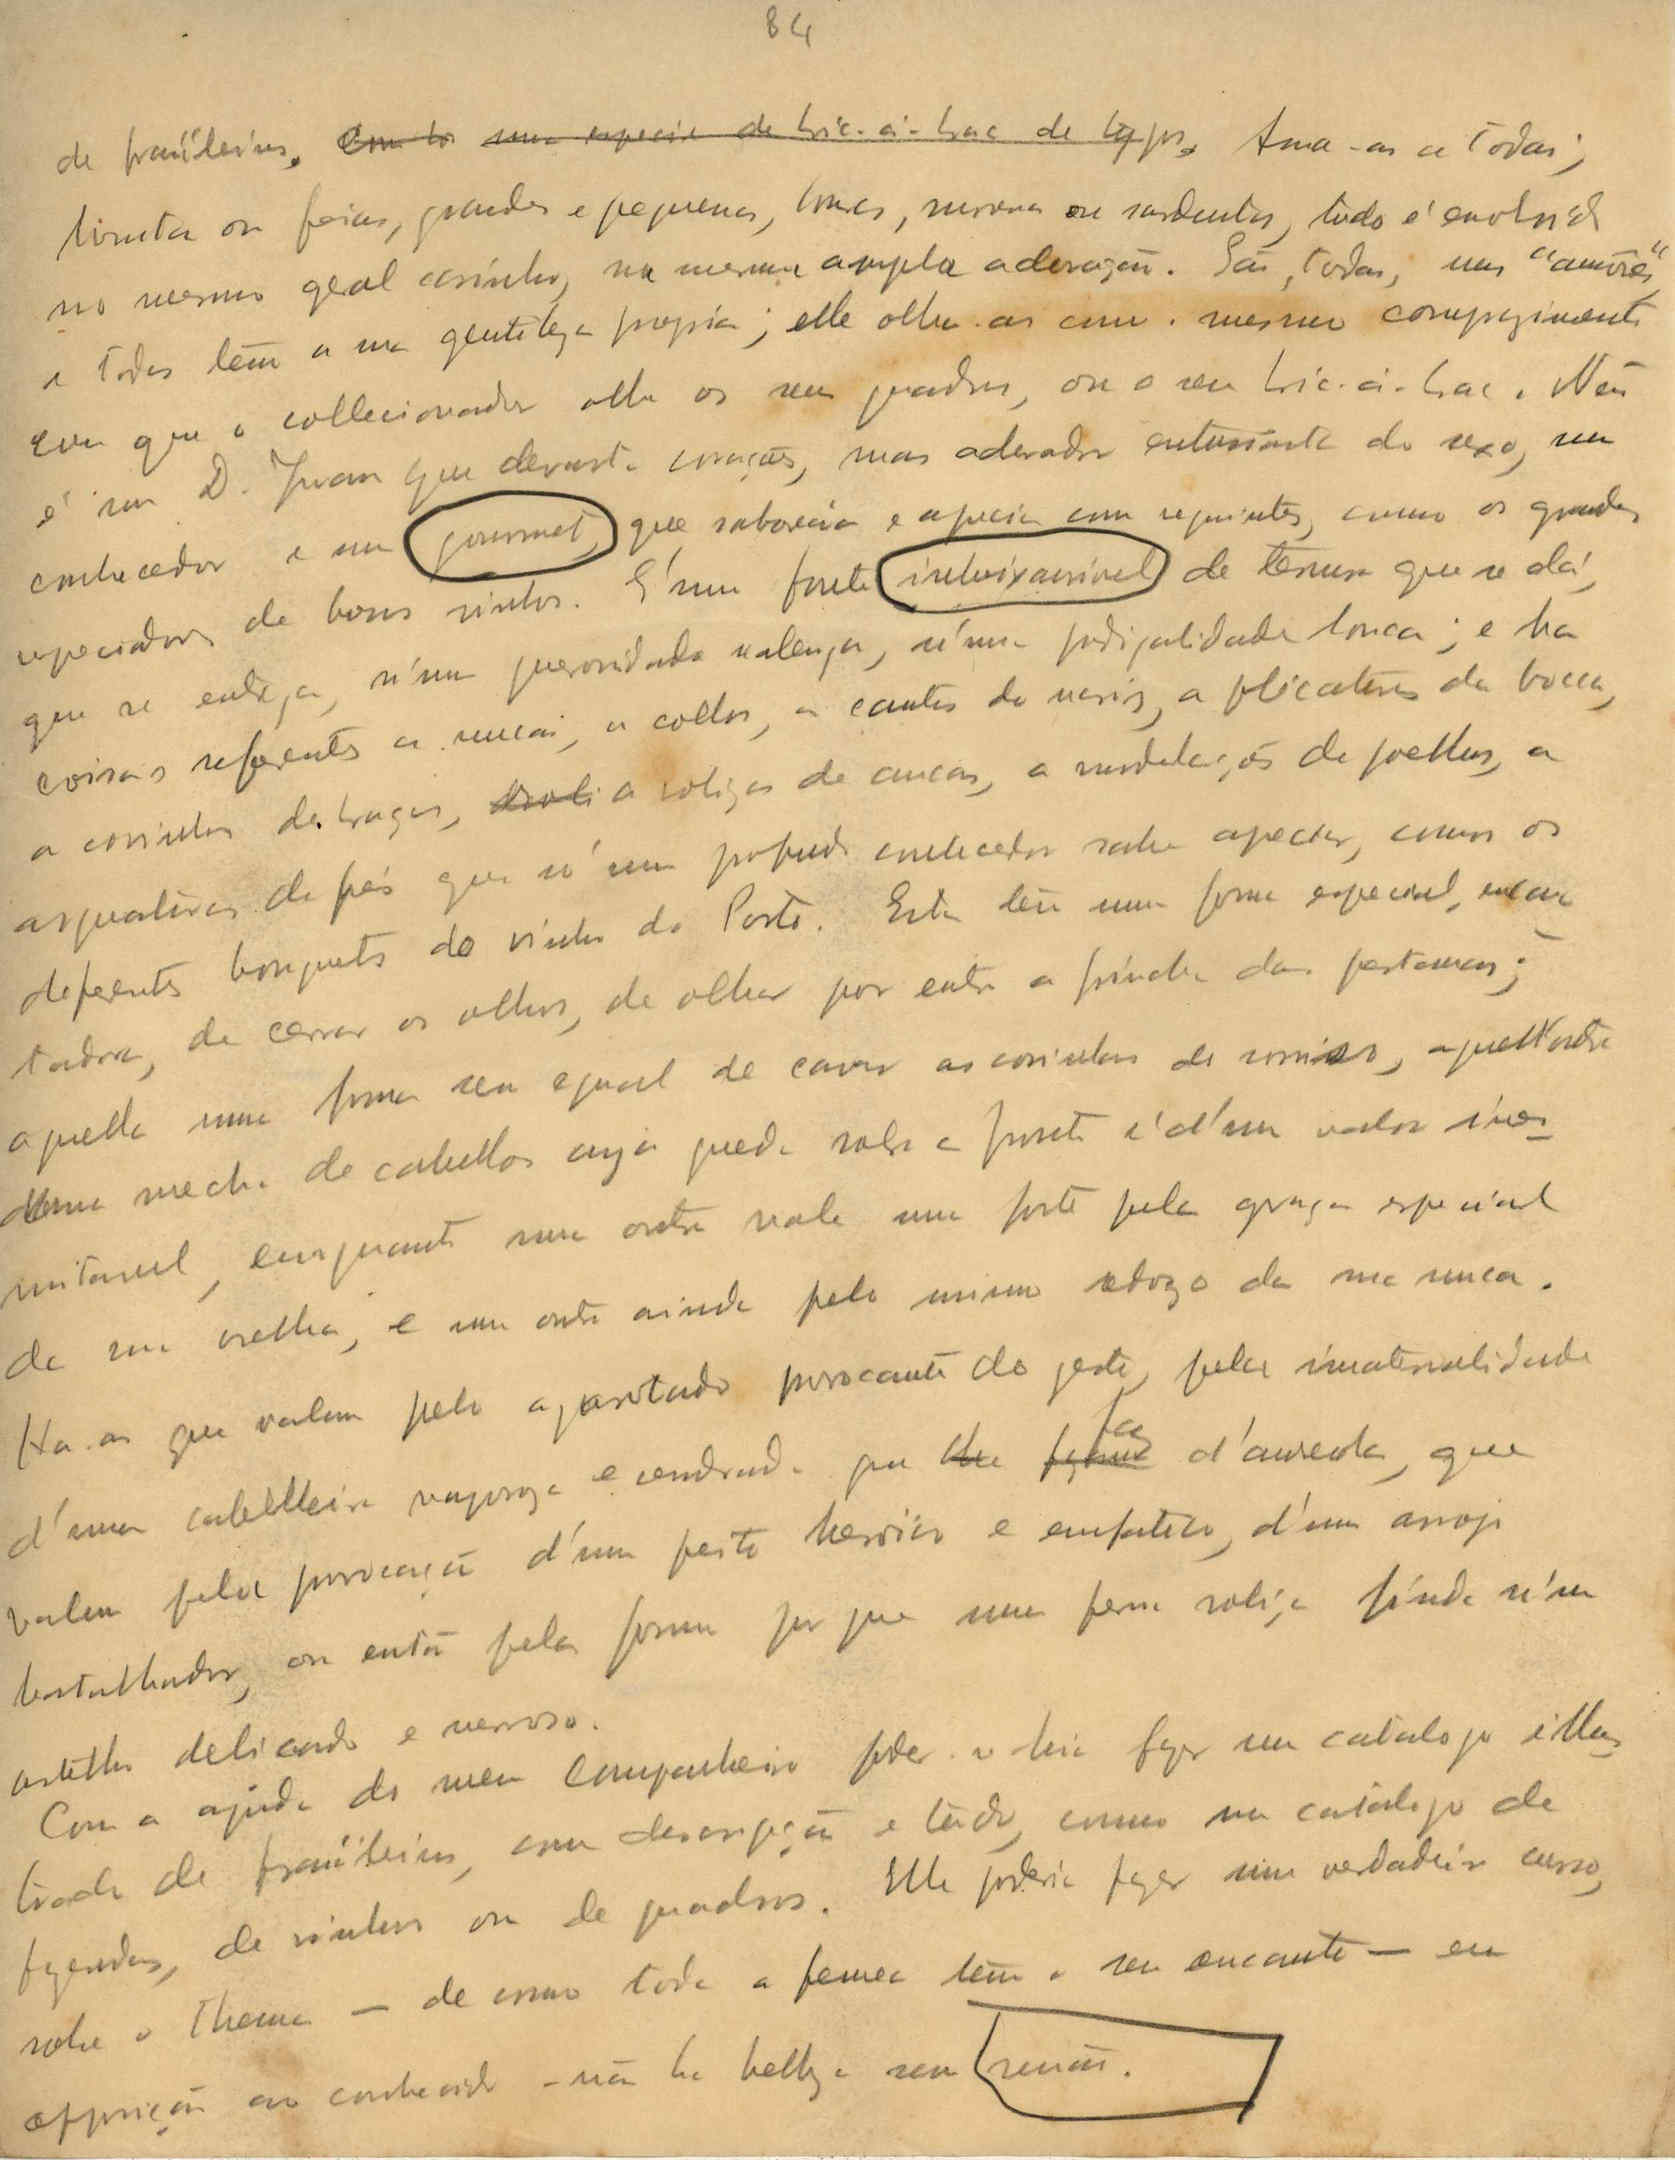 84
de fraüleins. uma especie de bric-à-brac de typos. Ama-as a todas;
bonitas ou feias, grandes e pequenas, louras, morenas ou sardentas, tudo é envolvido
no mesmo geral carinho, na mesma ampla adoração. São, todas, uns "amôres"
e todas têm a sua gentileza propria; elle olha-as com o mesmo comprazimento
com que o collecionador olha os seus quadros, ou o seu bric-à-brac. Não
é um D. Juan que devasta corações, mas adorador entusiasta do sexo, um
conhecedor e um gourmet, que saboreia e aprecia com requintes, como os grandes
apreciadores de bons vinhos. É uma fonte de ternura que se dá,
que se entrega, n'uma generosidade, n'uma prodigalidade louca; e ha
coisas referentes a nucas, a collos, a cantos do nariz, a da bocca,
a covinhas de braços, a de ancas, a modelações de joelhos, a
arqueaturas de pés que só um profundo conhecedor sabe apreciar, como os
diferentes bouquets do vinho do Porto. Esta tem uma forma especial, encan
tadora, de cerrar os olhos, de olhar por entre a franja das pestanas;
aquella uma forma sem egual de cavar as covinhas do sorriso, aquell'outra
uma mecha de cabellos cuja queda sobre a fronte é d'um valor ines
timavel, emquanto uma outra vale uma forte pela graça especial
da sua orelha, e uma outra ainda pelo mimo da sua nuca.
Ha-as que valem pelo agarotado provocante do gesto, pela imaterialidade
d'uma cabelleira vaporosa e cendrada que lhe faz d'aureola, que
valem pela provocação d'um peito heroico e emfatico, d'um arrojo
batalhador, ou então pela forma por que uma perna roliça finda n'um
artelho delicado e nervoso.
Com a ajuda do meu companheiro poder-se-hia fazer um catalogo illus
trado de fraüleins, com descripção e tudo, como um catalogo de
fazendas, de vinhos ou de quadros. Elle poderia fazer um verdadeiro curso,
sobre o thema — de como toda a femea tem o seu encanto — em
opposição ao conhecido - não ha belleza sem senão.